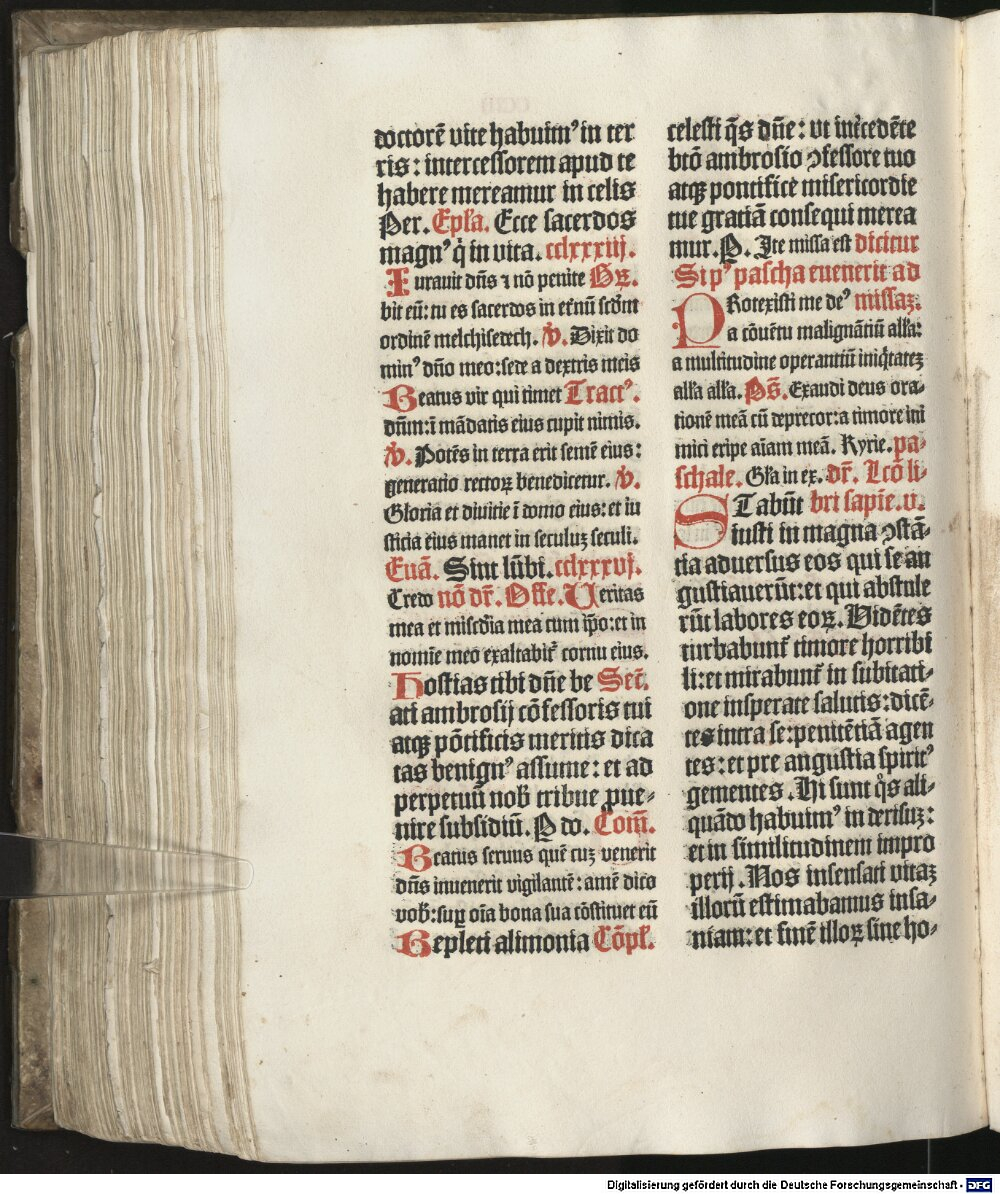 doctorē vite habuimꝰ in ter
ris: intercessorem apud te
habere mereamur in celis
Per. Epła. Ecce sacerdos
magnꝰ q̇ in vita. cclxxxiij.
Iurauit dn̄s ⁊ nō penite Gꝝ.
bit eū: tu es sacerdos in et̓nū scd̄m
ordinē melchisedech. v̇. Dixit do
minꝰ dn̄o meo: sede a dextris meis
Beatus vir qui timet Tractꝰ.
dn̄m: ī mādatis eius cupit nimis.
v̇. Potēs in terra erit semē eius:
generatio rectoꝝ benedicetur. v̇.
Gloria et diuitie ī domo eius: et iu
sticia eius manet in seculuꝫ seculi.
Euā. Sint lūbi. cclxxxvj.
Credo nō dr̄. Offe. Ueritas
mea et misc̄dia mea cum ip̄o: et in
nomīe meo exaltabit᷑ cornu eius.
Hostias tibi dn̄e be Sec̄.
ati ambrosij cōfessoris tui
atqꝫ pōtificis meritis dica
tas benignꝰ assume: et ad
perpetuū nob̄ tribue ꝓue-
nire subsidiū. P do. Com̄.
Beatus seruus quē cuꝫ venerit
dn̄s inuenerit vigilantē: amē dico
vob̄: suꝑ oīa bona sua cōstituet eū
Repleti alimonia Cōpł.
celesti q̄s dn̄e: vt int̓cedēte
btō ambrosio ꝯfessore tuo
atqꝫ pontifice misericordie
tue gratiā consequi merea
mur. P. Ite missa est dicitur
Si pꝰ pascha euenerit ad
PRotexisti me deꝰ missaꝫ.
a cōuētu malignātiū allā:
a multitudine operantiū iniq̇tateꝫ
allā allā. Ps̄. Exaudi deus ora-
tionē meā cū deprecor: a timore ini
mici eripe aīam meā. Kyrie. pa-
schale. Glā in ex. dr̄. Lcō li-
STabūt bri sapīe. v.
iusti in magna ꝯstā-
tia aduersus eos qui se an
gustiauerūt: et qui abstule
rūt labores eoꝝ. Uidētes
turbabunt᷑ timore horribi
li: et mirabunt᷑ in subitati-
one insperate salutis: dicē-
tes intra se: penitētiā agen
tes: et pre angustia spiritꝰ
gementes. Hi sunt q̊s ali-
quādo habuimꝰ in derisuꝫ:
et in similitudinem impro
perij. Nos insensati vitaꝫ
illorū estimabamus insa-
niam: et finē illoꝝ sine ho-
Digitalisierung gefördert durch die Deutsche Forschungsgemeinschaft - DFG